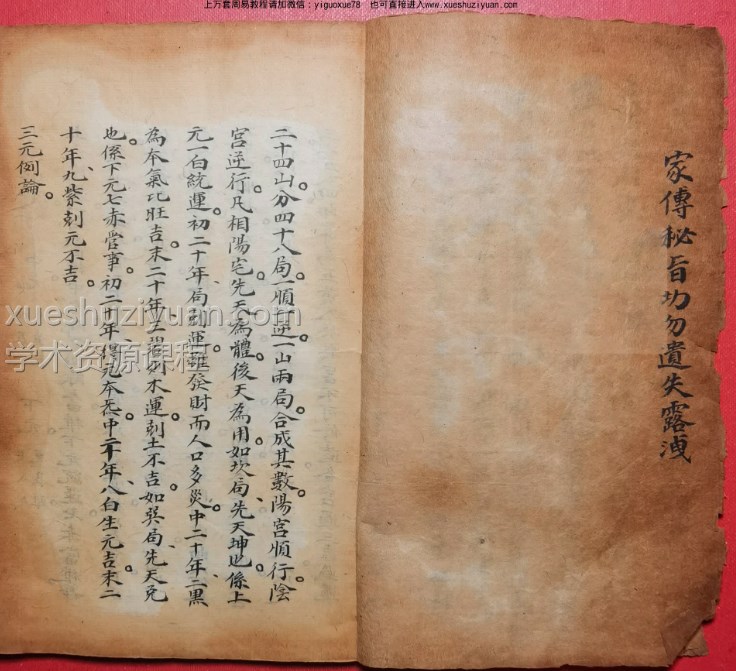 上万套周易教程请加微信：yiguoxue78 也可直接进入www.xueshuziyuan.com
家傳秘旨切勿遺失露洩
二十四山。分四十八局。一順一逆。一山兩局。合成其數。陽宮順行。陰
宮逆行。凡相陽宅。先天為體。後天為用。如坎局、先天坤也。係上
元一白統運。初二十年、局剋運。雖發財而人口多災。中二十年、二黑
為本氣比旺吉。末二十年、三碧木運剋土不吉。如巽局、先天兌
也。係下元七赤管事。初二十年得元本炁。中二十年、八白生元吉。末二
十年、九紫剋元不吉。
三元例論。
xueshuziyuan.com
学术资源课程